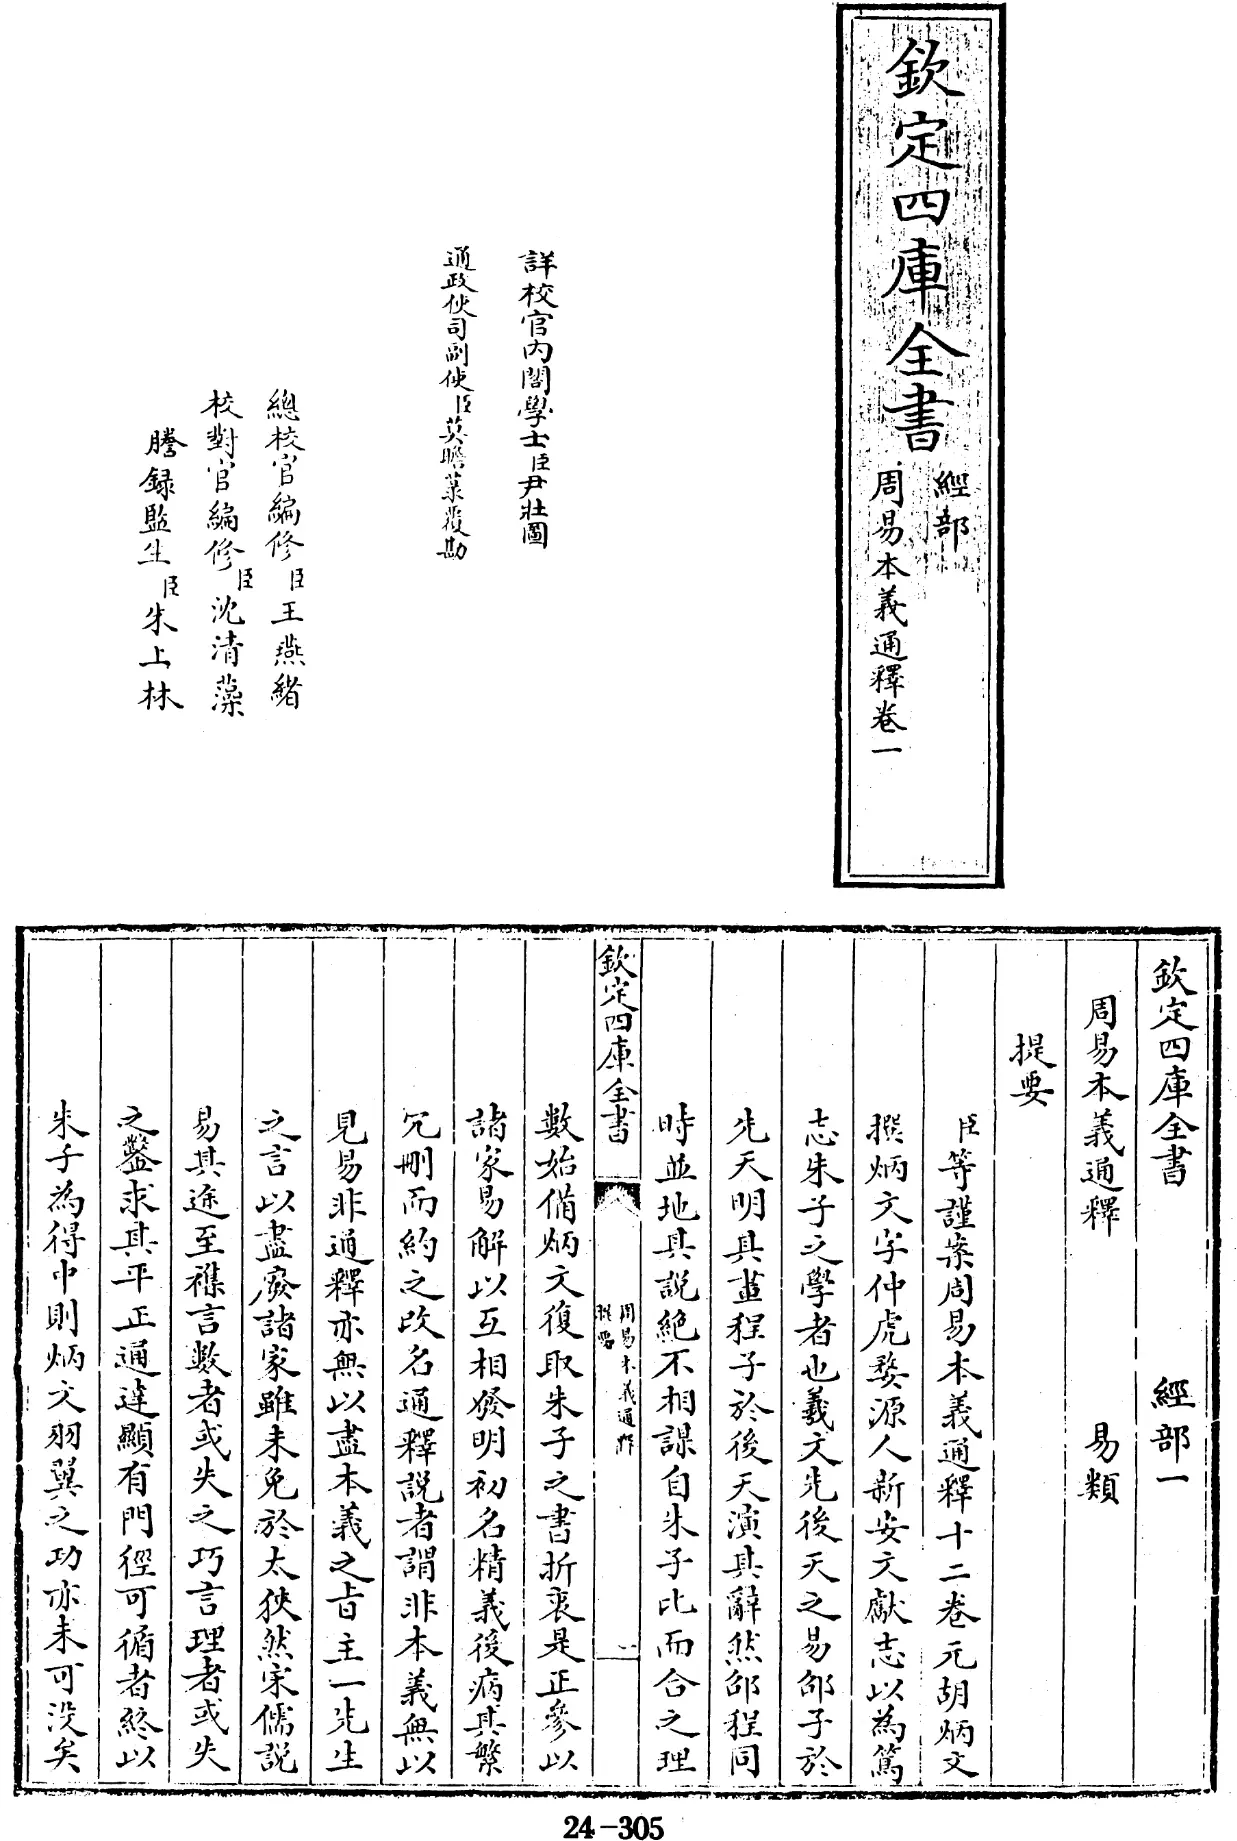 欽定四庫全書
經部
周易本義通釋卷一
詳校官內閣學士臣尹壯圖
通政使司副使臣莫瞻菉覆勘
總校官編修臣王燕緒
校對官編修臣沈清藻
謄録監生臣朱上林
欽定四庫全書 經部一
周易本義通釋 易類
提要
臣等謹案周易本義通釋十二卷元胡炳文
撰炳文字仲虎婺源人新安文獻志以為篤
志朱子之學者也羲文先後天之易邵子於
先天明其畫程子於後天演其辭然邵程同
時並地其説絶不相謀自朱子比而合之理
欽定四庫全書
周易本義通釋
提要
一
數始備炳文復取朱子之書折衷是正參以
諸家易解以互相發明初名精義後病其繁
冗刪而約之改名通釋説者謂非本義無以
見易非通釋亦無以盡本義之旨主一先生
之言以盡廢諸家雖未免於太狹然宋儒説
易其途至襍言數者或失之巧言理者或失
之鑿求其平正通達顯有門徑可循者終以
朱子為得中則炳文羽翼之功亦未可没矣
24-305